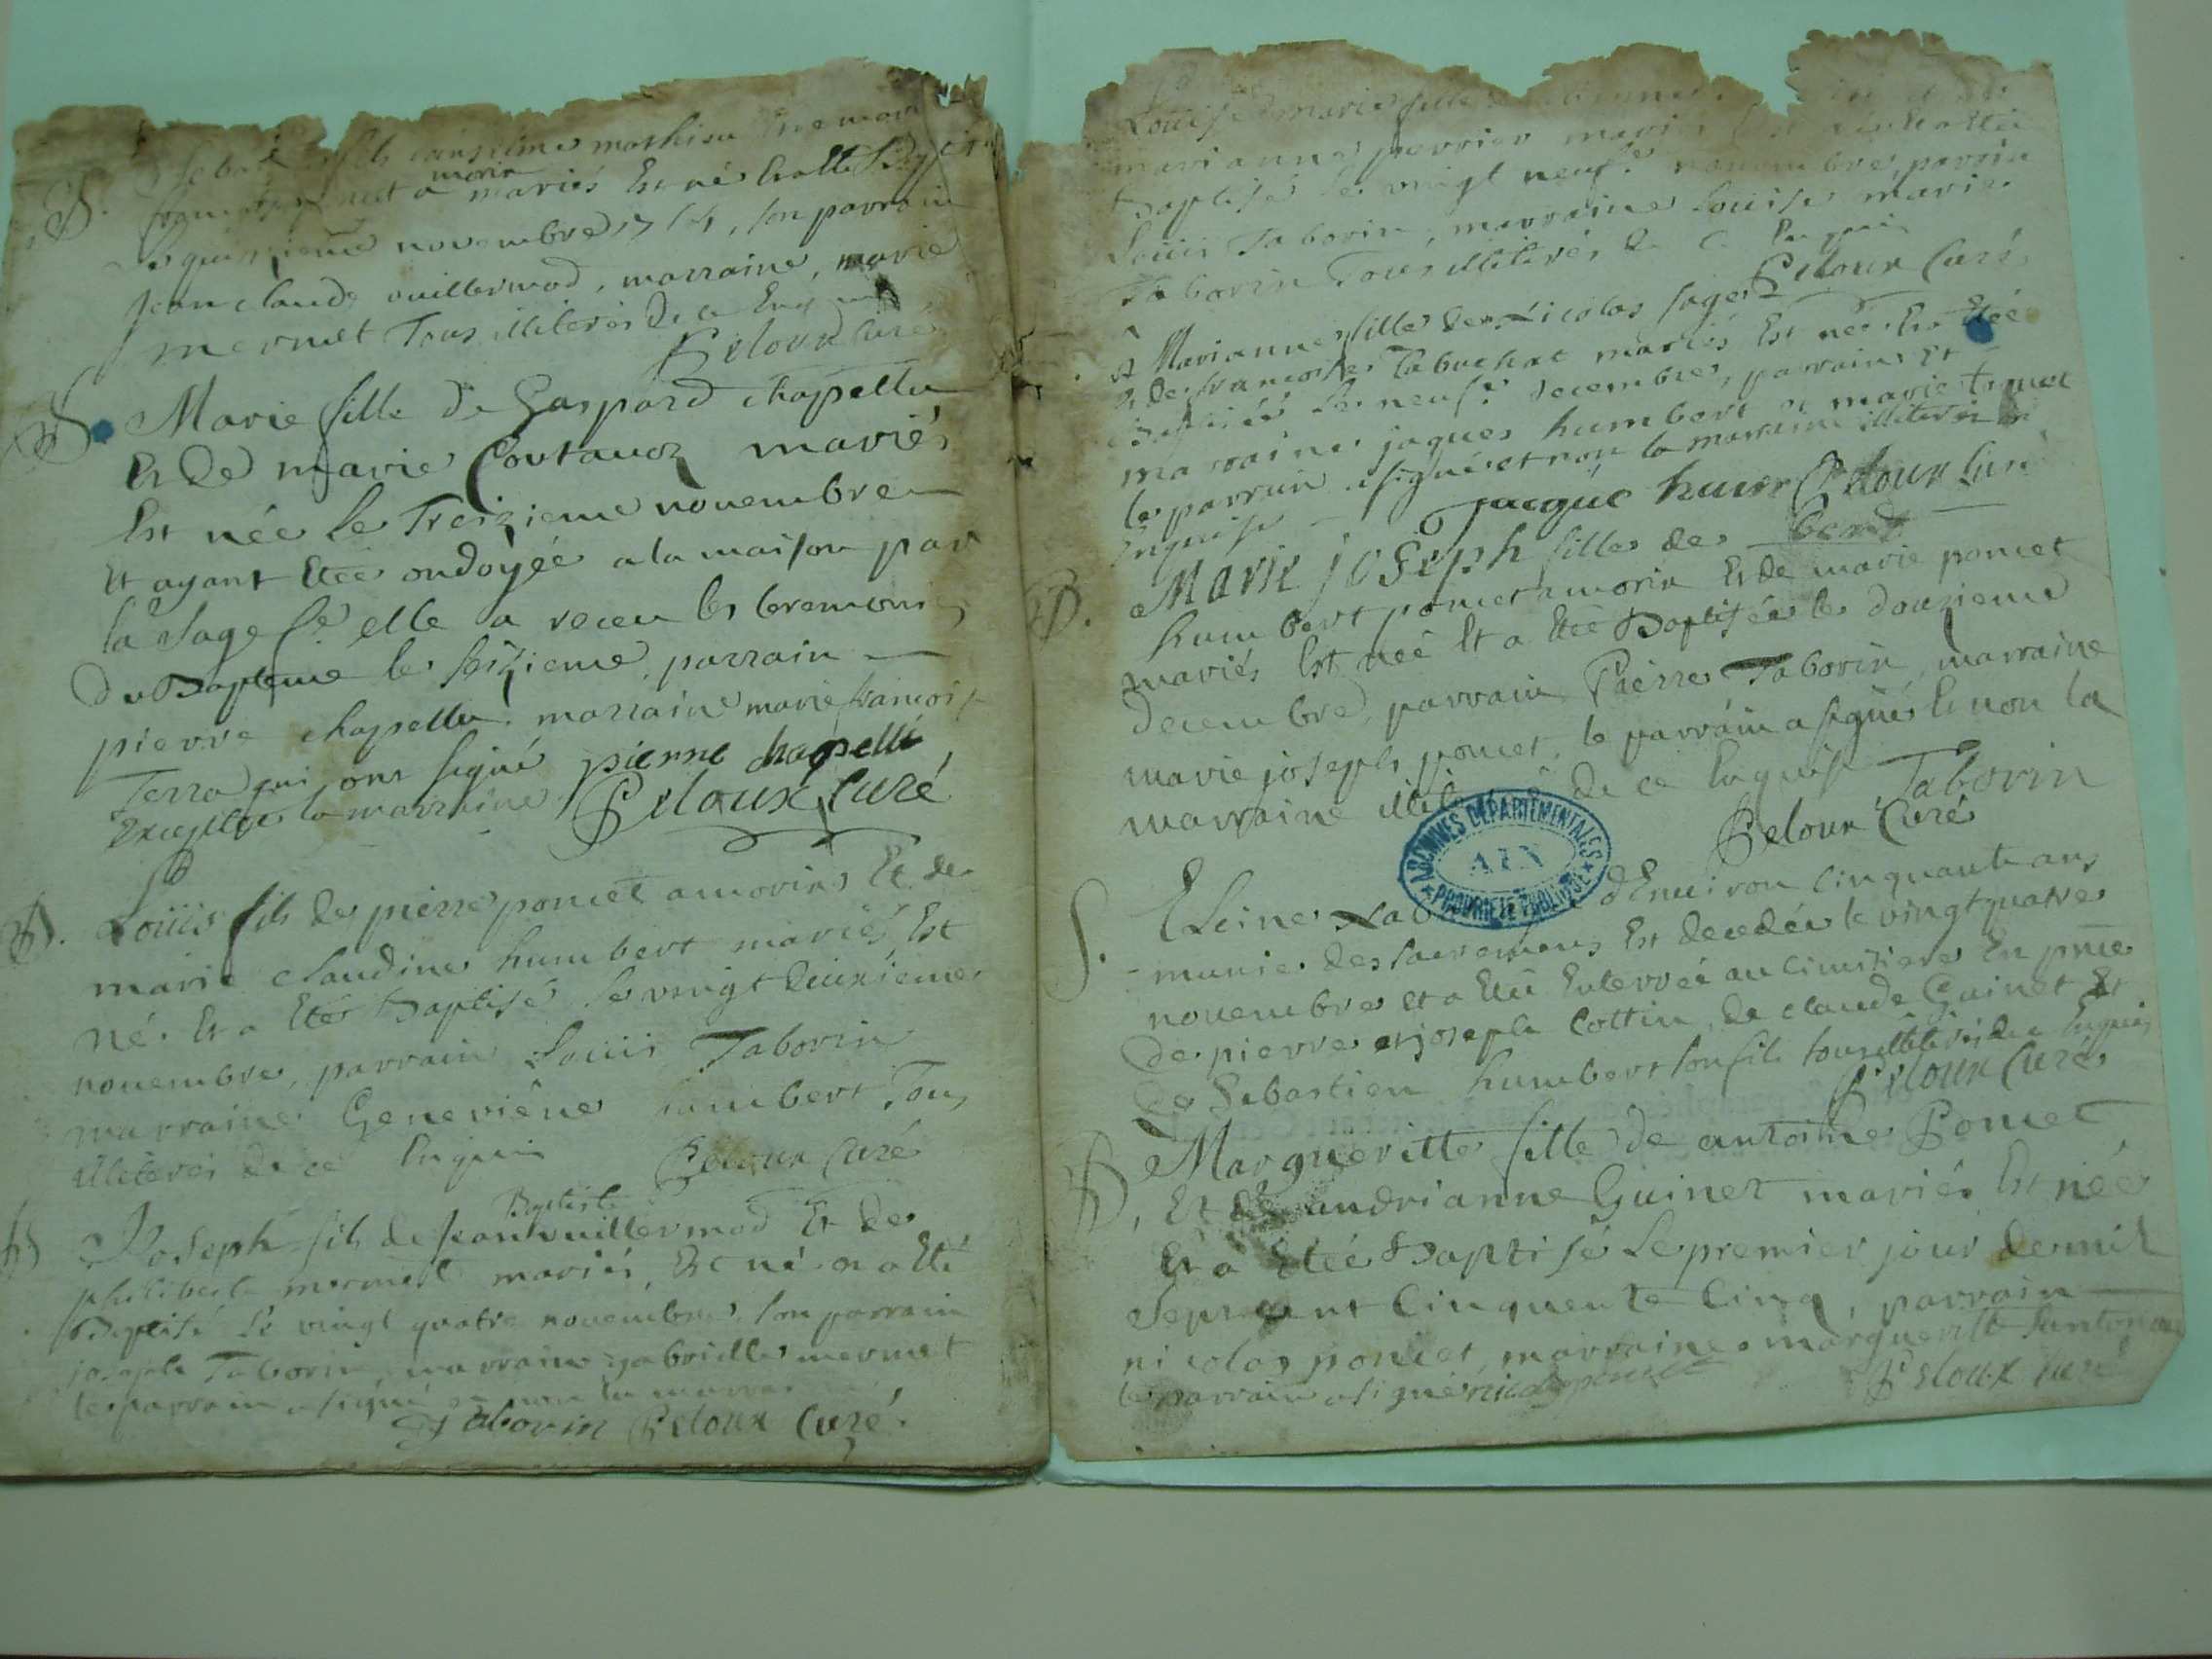 B.
fils mathieu
poncet a morin mariés Est né Et a Eté Baptisé
Le quinzieme novembre 1754, son parrain
jean claude vuillermod, marraine, marie
mermet Tous illiterés De ce Enquis
Peloux Curé
B. Marie fille De Gaspard chapellu
Et De marie Coutauoz mariés
Est née Le Treizieme novembre
Et ayant Etée ondoyée a la maison par
la Sage fe elle a receu les ceremonies
Du Bapteme le seizieme, parrain
pierre chapellu marraine marie françoise
Terra qui ont signé pierre chapellu
Exceptée la marraine Peloux Curé
B. Louis fils de pierre poncet a morin Et de
marie claudine humbert mariés Est
né Et a Eté Baptisé le vingt deuxieme
novembre, parrain Louis Taborin
marraine Genevieve humbert, Tous
illiterés de ce Enquis Peloux Curé
B Joseph fils de Jean Baptiste vuillermod Et de
philiberte mermet mariés, Est né et a Eté
Baptisé le vingt quatre novembre, son parrain
joseph Taborin, marraine gabrielle mermet
le parrain a signé et non la marraine
Taborin Peloux Curé
Louise marie fille
marianne perrier mariés
Baptisé le vingt neufe novembre, parrain
Louis Taborin, marraine Louise marie
Taborin Tous illiterés de ce Enquis
Peloux Curé
Marianne fille de Nicolas sage
Et de francoise Tabuchet mariés Est née Et a Etée
Baptisée Le neufe decembre, parrain Et
marraine jaques humbert et marie
le parrain a signé et non la marraine illiterée de ce
Enquise Jacque humbert Peloux Curé
B. Marie joseph fille de
humbert poncet a morin Et de marie poncet
mariés Est née Et a Etée Baptisée le douzieme
decembre, parrain Pierre Taborin, marraine
marie joseph poncet, le parrain a signé Et non la
marraine de ce Enquise Taborin
Peloux Curé
ARCHIVES DEPARTEMENTALES
AIN
PROPRIETE PUBLIQUE
S. Eleine d'Environ Cinquante ans
munie des sacremens Est decedée le vingt quatre
novembre et a Eté Enterrée au cimitiere En pnce
de pierre et joseph Cottin, de claude Guinet Et
de Sebastien humbert son fils tous illiterés de ce Enquis
Peloux Curé
B Margueritte fille de antoine Poncet
Et de andrianne Guinet mariés Est née
Et a Etée Baptisé Le premier jour de mil
Sept cent Cinquente Cinq, parrain
nicolas poncet, marraine margueritte
le parrain a signé nicolas poncet Peloux curé